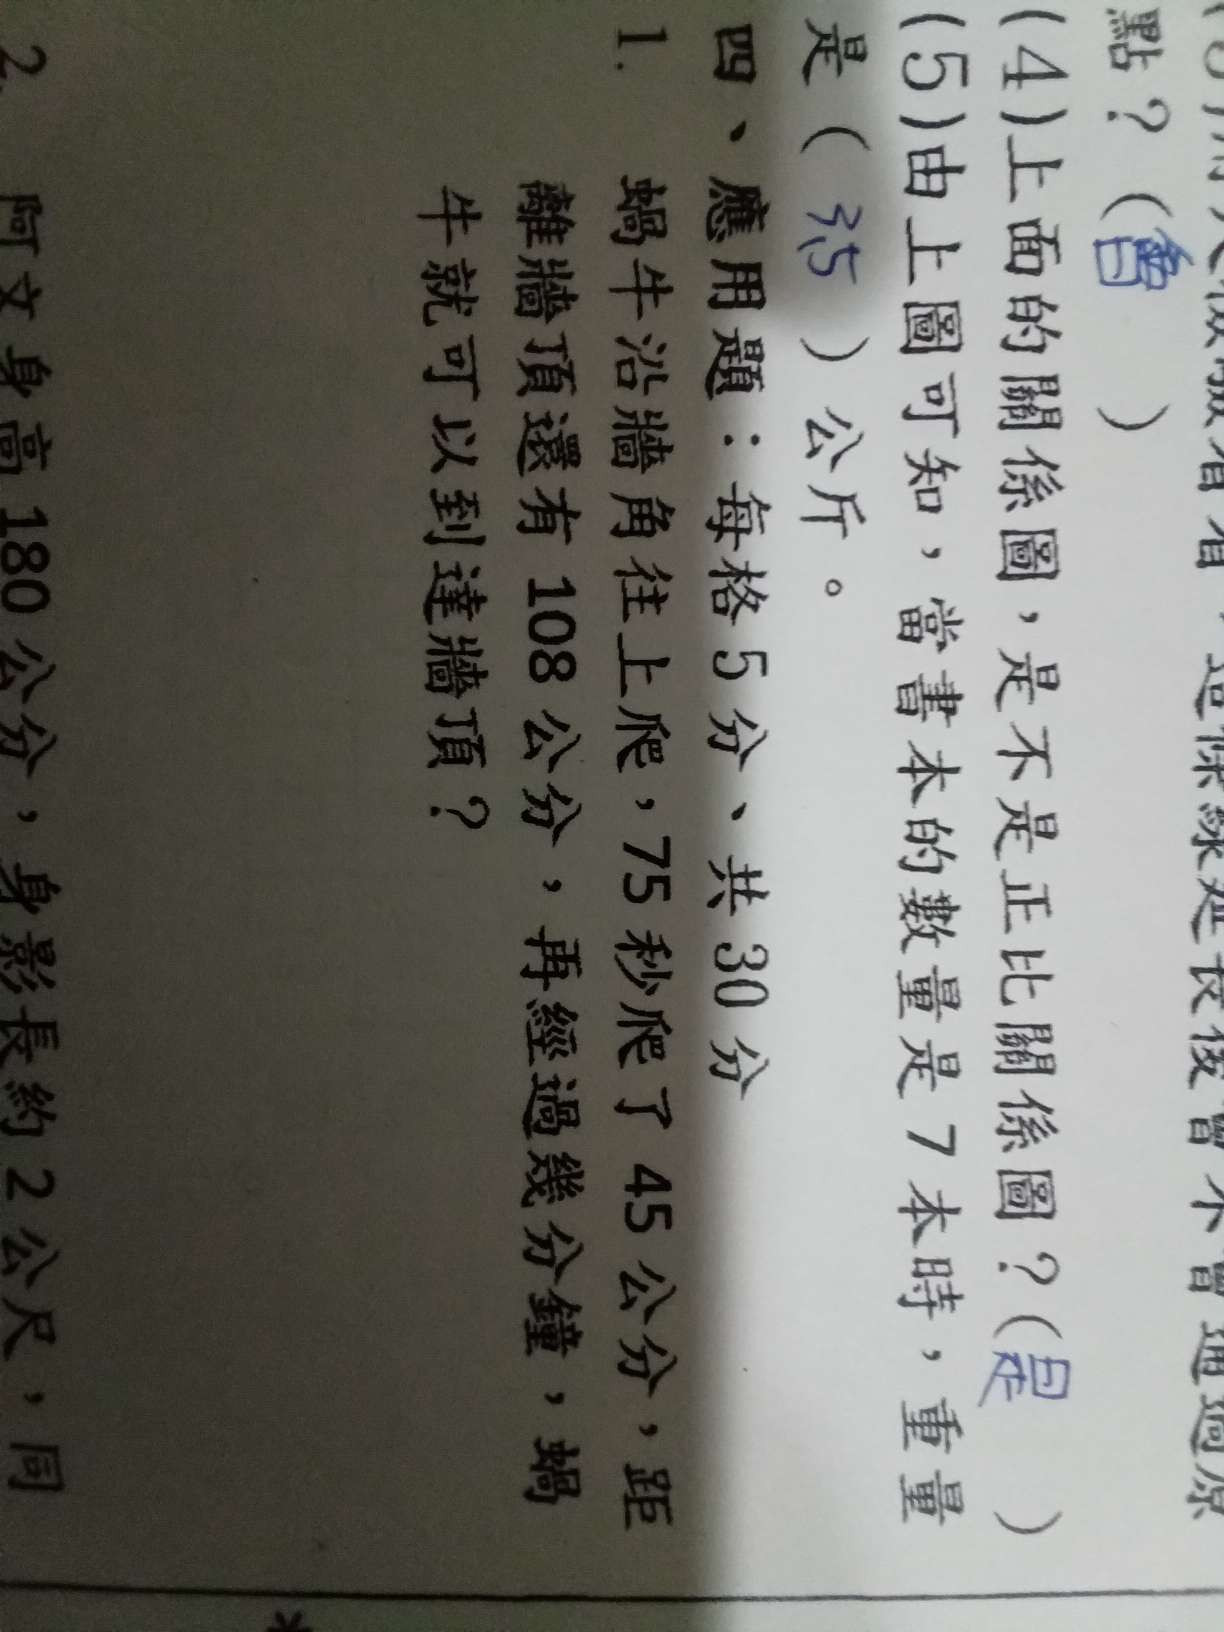 點?(會 )
(4)上面的關係圖,是不是正比關係圖?(是 )
(5)由上圖可知,當書本的數量是7本時,重量
是( 3.5 )公斤。
四、應用題:每格5分、共30分
1. 蝸牛沿牆角往上爬,75秒爬了45公分,距
離牆頂還有108公分,再經過幾分鐘,蝸
牛就可以到達牆頂?
2. 阿文身高180公分,身影長約2公尺,同